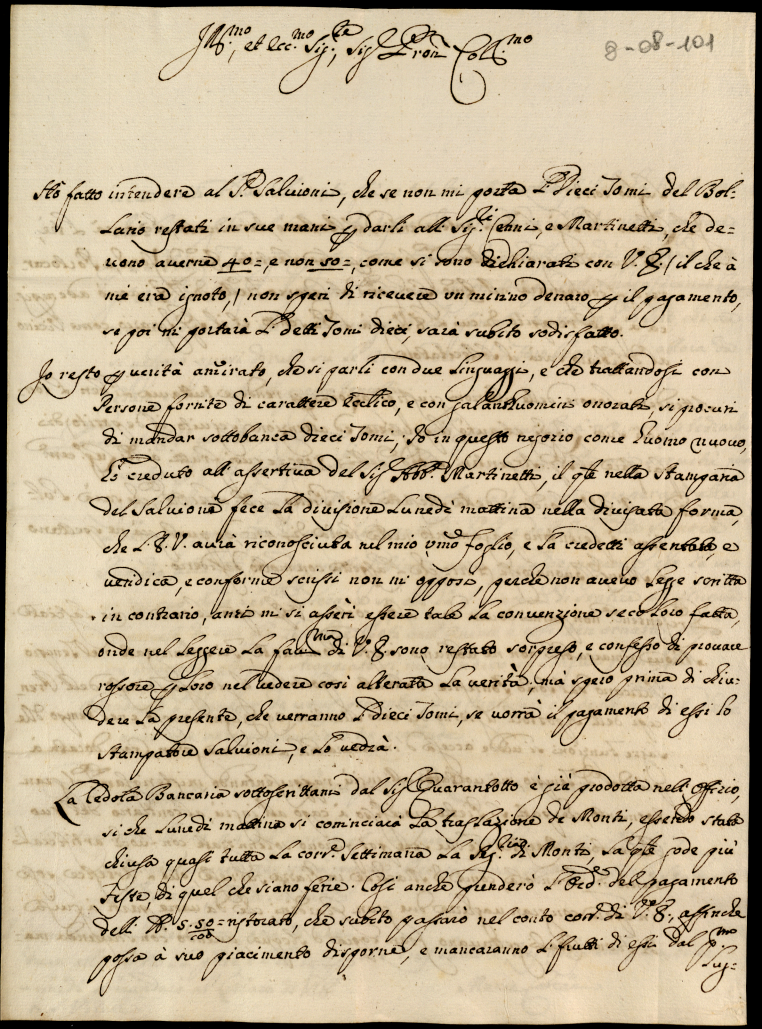 Ill.mo, et Ecc.mo Sig.re, Sig.r Pron Coll.mo
8-08-101
Hò fatto intendere al S.r Salvioni, che se non mi porta L Dieci Tomi del Bol=
lario restati in sue mani p darli alli Sig.ri Cenni, e Martinetti, che de=
vono averne 40=, e non 50=, come si sono dichiarati con V. E. /il che à
mè era ignoto,/ non speri di ricevere un minimo denaro p il pagamento,
se poi mi portarà L detti Tomi dieci, sarà subito sodisfatto.
Io resto p verità amirato, che si parli con due Linguaggi, e che trattandosi con
Persone fornite di carattere Ecclico, e con galanthuomini onorati, si procuri
di mandar sottobanca dieci Tomi; Io in questo negozio come huomo nuovo,
hò creduto all'assertiva del Sig.r Abb.e Martinetti, il qle nella stamparia
del Salvione fece la divisione Lunedì mattina nella divisata forma,
che L'E. V. avrà riconosciuta nel mio umo foglio, e la credetti assentata, e
veridica, e conforme scrissi non mi opposi, perche non avevo Legge scritta
in contrario, anzi mi si asserì essere tale la convenzione seco loro fatta,
onde nel leggere la fav.ma di V. E. sono restato sorpreso, e confesso di provare
rossore p loro nel vedere così alterata la verità, mà spero prima di chiu=
dere la presente, che verranno L Dieci Tomi, se vorrà il pagamento di essi lo
stampatore Salvioni, e lo vedrà.
La Cedola Bancaria sottoscrittami dal Sig.r Quarantotto è già prodotta nell'Offizio,
si che Lunedì mattina si cominciarà la traslazione de Monti, essendo stata
chiusa quasi tutta la corr.e Settimana la Seg.ria di Monti, la qle gode più
Feste, di quel che siano ferie. Così anche prenderò L'Ord.e del pagamento
delli 5.50 ristorato, che subito passarò nel conto corr.e di V. E., affinche
possa à suo piacimento disporne, e mancaranno L frutti di essi dal p.mo
Lug=